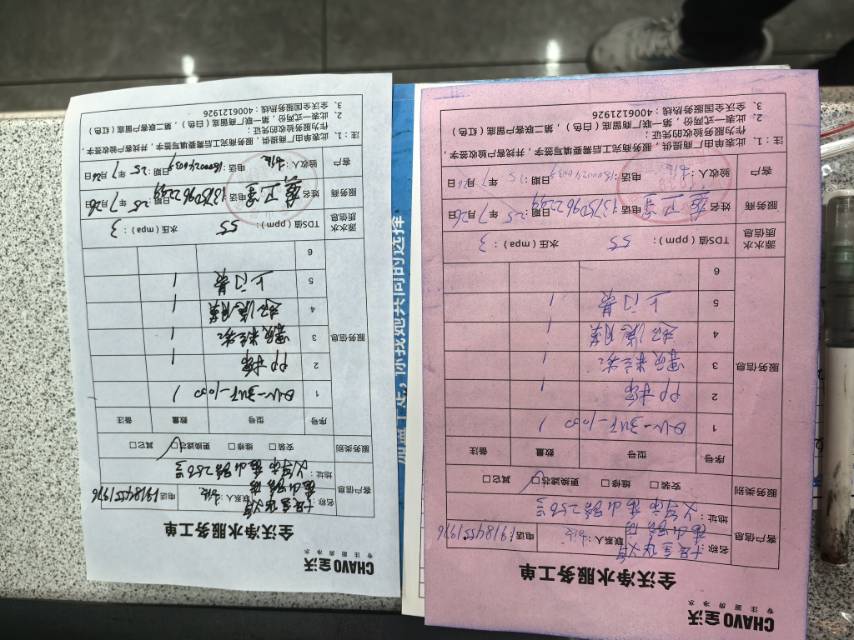 CHAVO 全沃
专注厨房净水
全沃净水服务工单
客户信息
名称：
联系人：
电话 19184551976
地址： 义乌市香山路258号
服务类别
安装□ 维修□ 更换滤芯□ 其它□
服务信息
序号 型号 数量 备注
1 1
2 PP棉 1
3 1
4 1
5 上门费 1
6
源水水质信息
TDS值（ppm）： 55 水压（mpa）： 3
服务商
姓名 电话 13750962239 日期： 25年7月26日
客户
验收人： 电话： 日期： 25年7月26日
注：1、此表单由厂商提供，服务后完工后需要填写签字，并找客户验收签字，
作为服务验收的凭证；
2、此表一式两份，第一联厂商留底（白色），第二联客户留底（红色）
3、全沃全国服务热线：4006121926
CHAVO 全沃
专注厨房净水
全沃净水服务工单
客户信息
名称：
联系人：
电话 19184551976
地址： 义乌市香山路258号
服务类别
安装□ 维修□ 更换滤芯□ 其它□
服务信息
序号 型号 数量 备注
1 1
2 PP棉 1
3 1
4 1
5 上门费 1
6
源水水质信息
TDS值（ppm）： 55 水压（mpa）： 3
服务商
姓名 电话 13750962239 日期： 25年7月26日
客户
验收人： 电话： 日期： 25年7月26日
注：1、此表单由厂商提供，服务后完工后需要填写签字，并找客户验收签字，
作为服务验收的凭证；
2、此表一式两份，第一联厂商留底（白色），第二联客户留底（红色）
3、全沃全国服务热线：4006121926
共同的选择